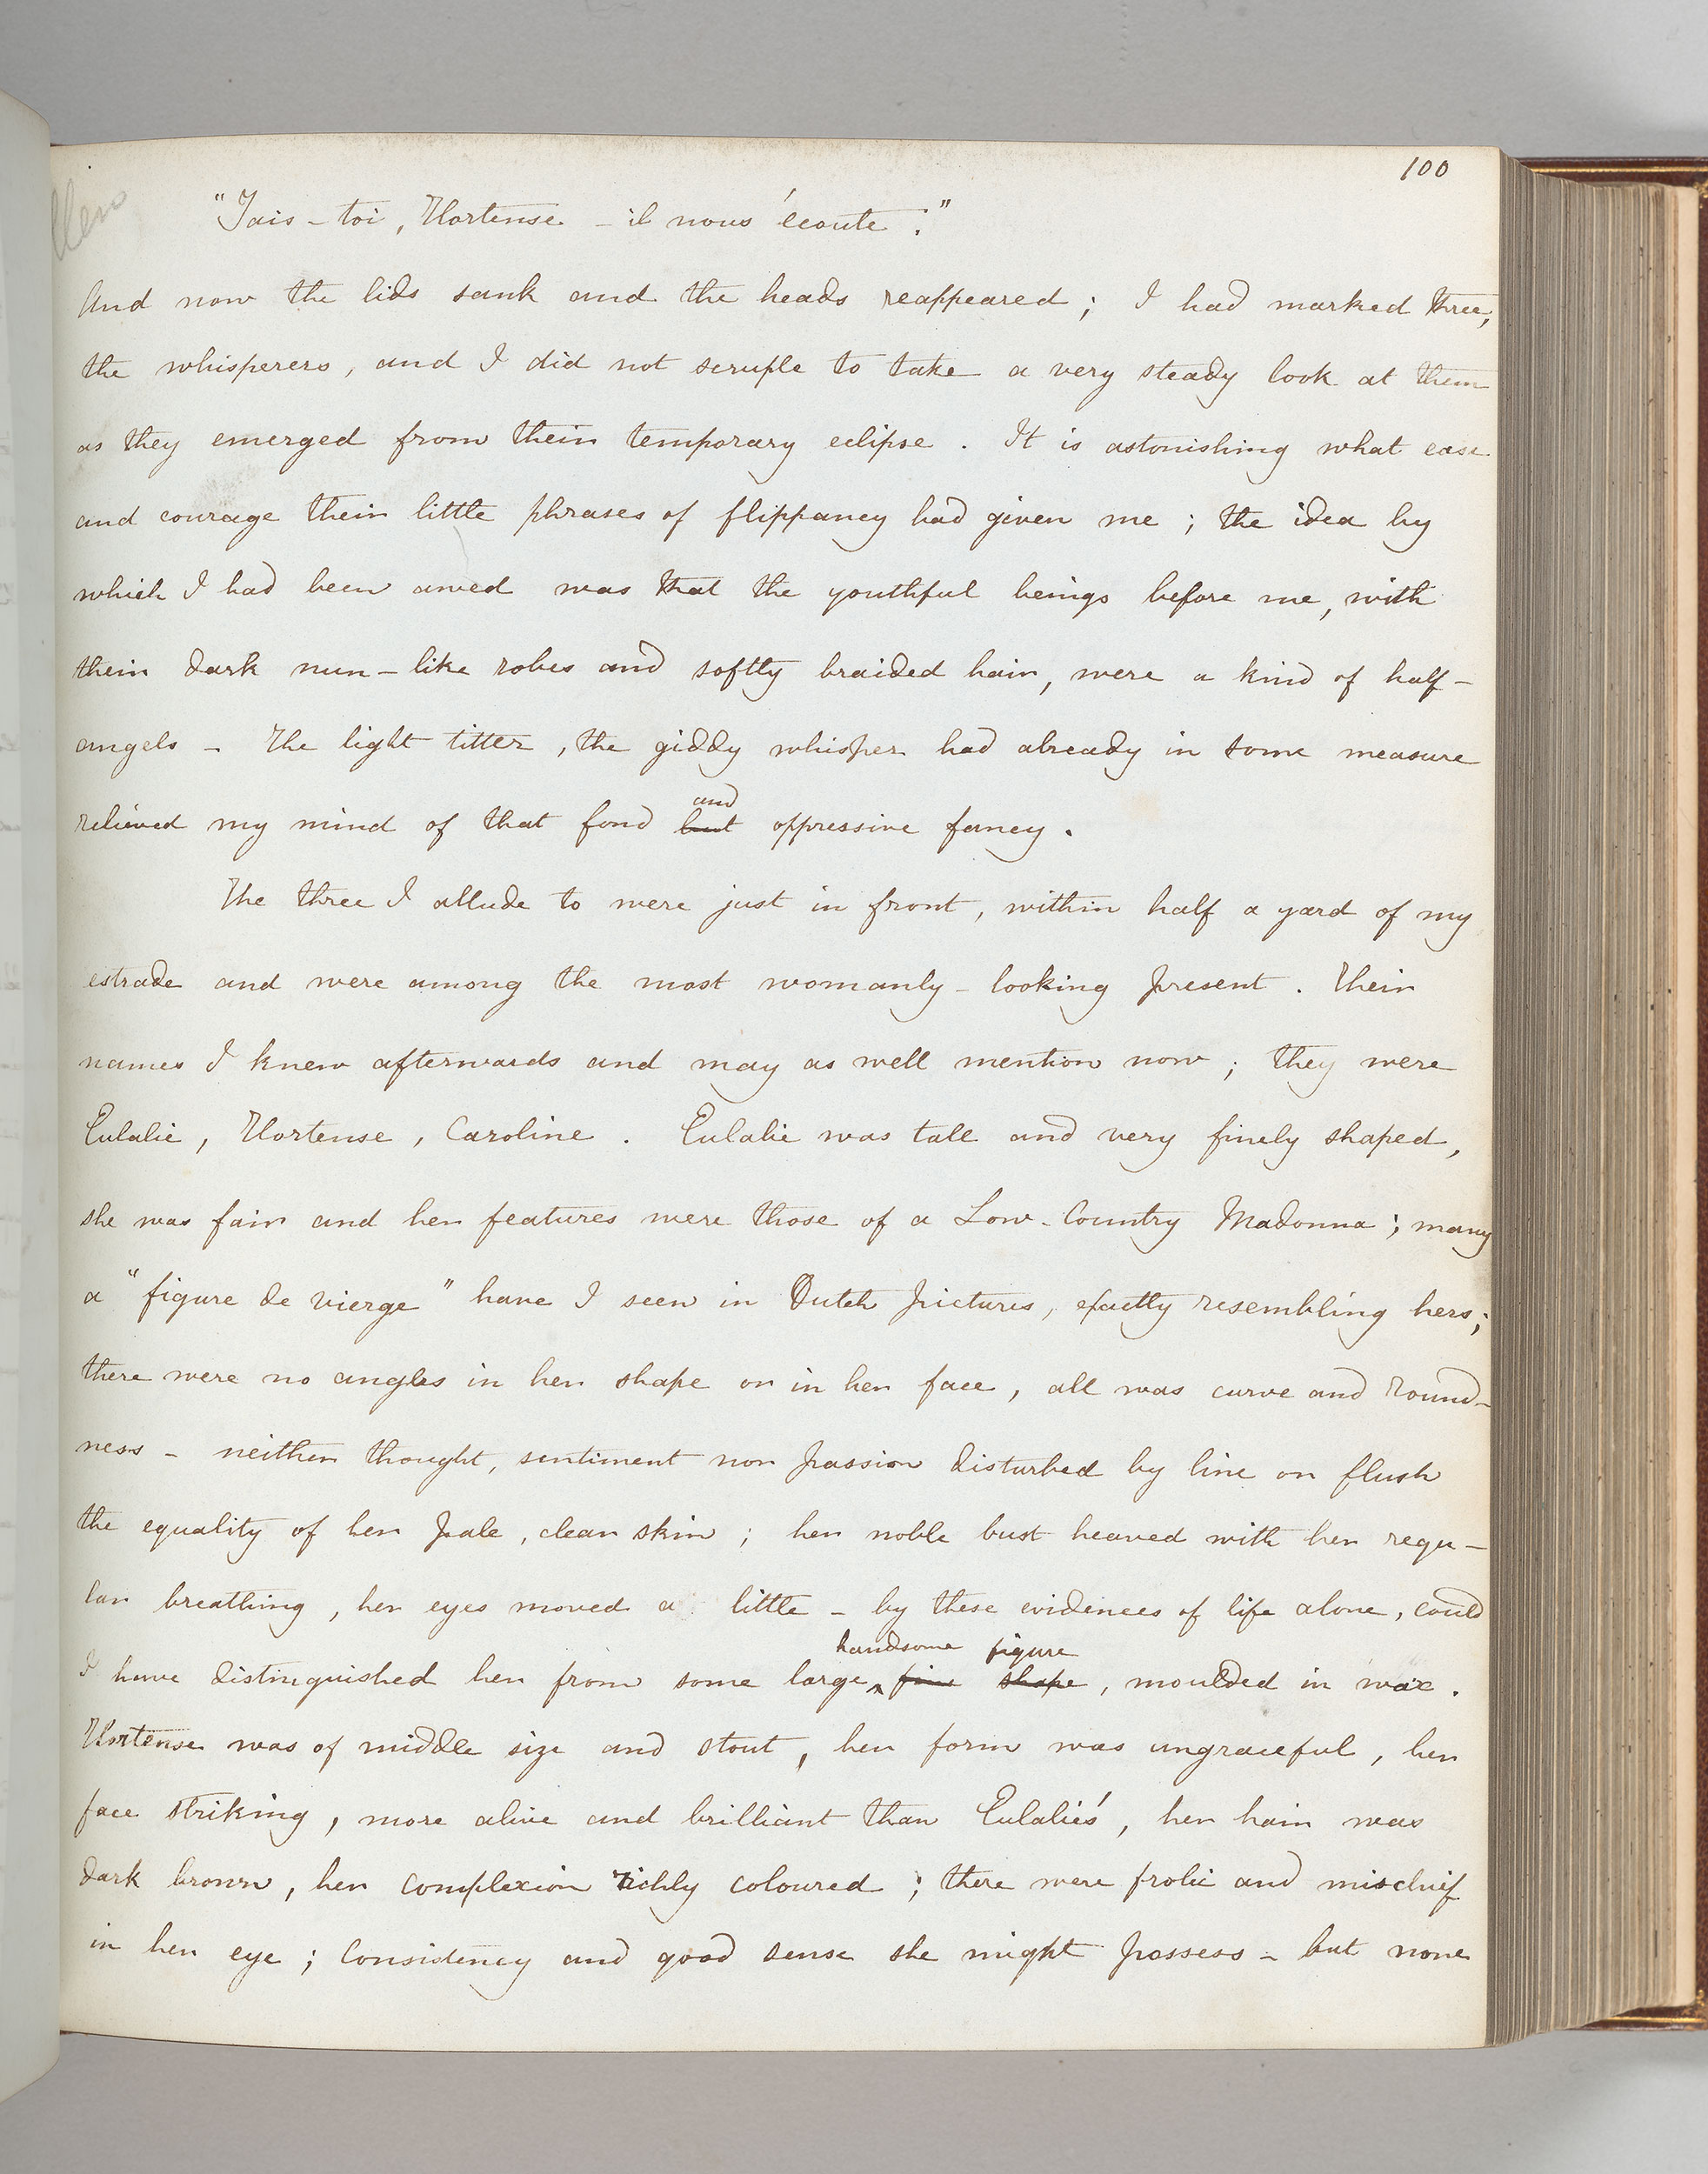 100
"Tais-toi, Hortense - il nous écoute."
And now the lids sank and the heads reappeared; I had marked three,
the whisperers, and I did not scruple to take a very steady look at them
as they emerged from their temporary eclipse. It is astonishing what ease
and courage their little phrases of flippancy had given me; the idea by
which I had been awed was that the youthful beings before me, with
their dark nun-like robes and softly braided hair, were a kind of half-
angels - The light titter, the giddy whisper had already in some measure
and
relieved my mind of that fond but oppressive fancy.
The three I allude to were just in front, within half a yard of my
estrade and were among the most womanly-looking present. Their
names I knew afterwards and may as well mention now; they were
Eulalie, Hortense, Caroline. Eulalie was tall and very finely shaped,
she was fair and her features were those of a Low-Country Madonna; many
a "figure de vierge" have I seen in Dutch pictures, exactly resembling hers;
there were no angles in her shape or in her face, all was curve and round-
ness - neither thought, sentiment nor passion disturbed by line or flush
the equality of her pale, clear skin; her noble bust heaved with her regu-
lar breathing, her eyes moved a little - by these evidences of life alone, could
handsome figure
I have distinguished her from some large fine shape, moulded in wax.
Hortense was of middle size and stout, her form was ungraceful, her
face striking, more alive and brilliant than Eulalie's, her hair was
dark brown, her complexion richly coloured; there were frolic and mischief
in her eye; consistency and good sense she might possess - but none